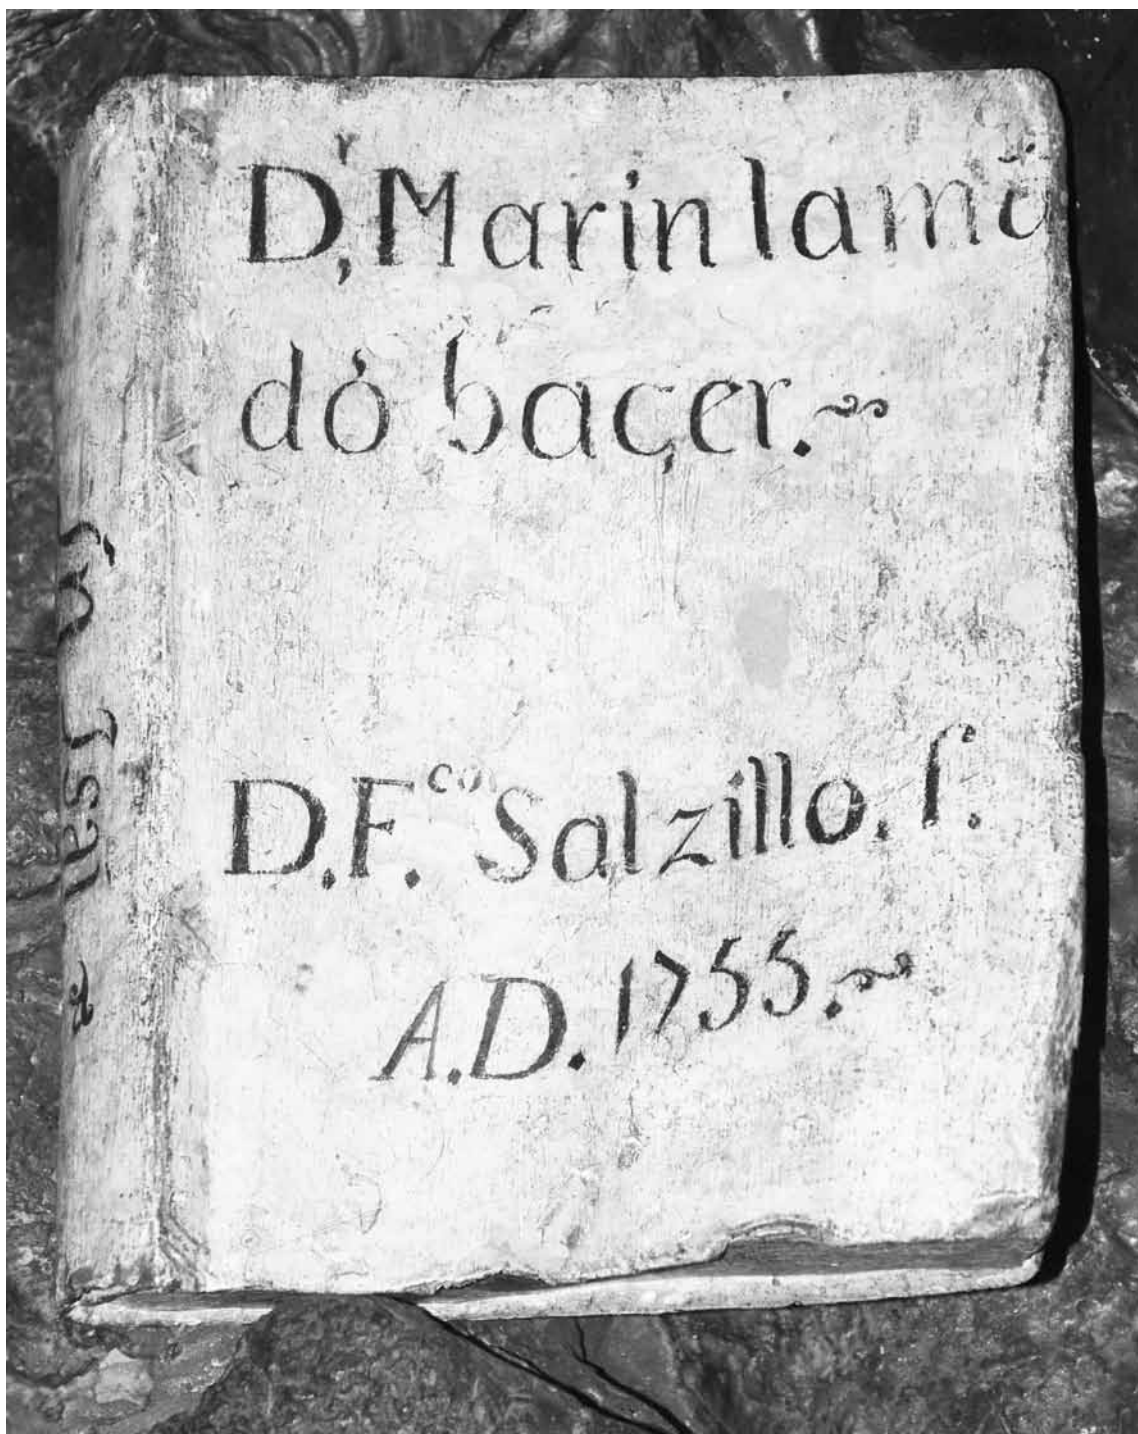 Dr, Marin lamā
dó baçer.
D. F.co Salzillo. f.
A.D. 1755.